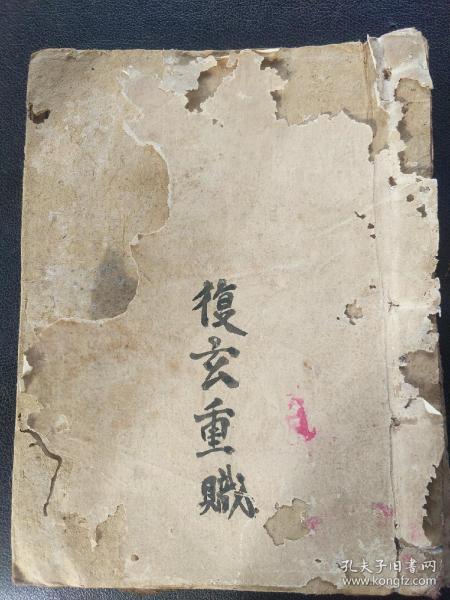 復玄重職
孔夫子旧书网
www.kongfz.com